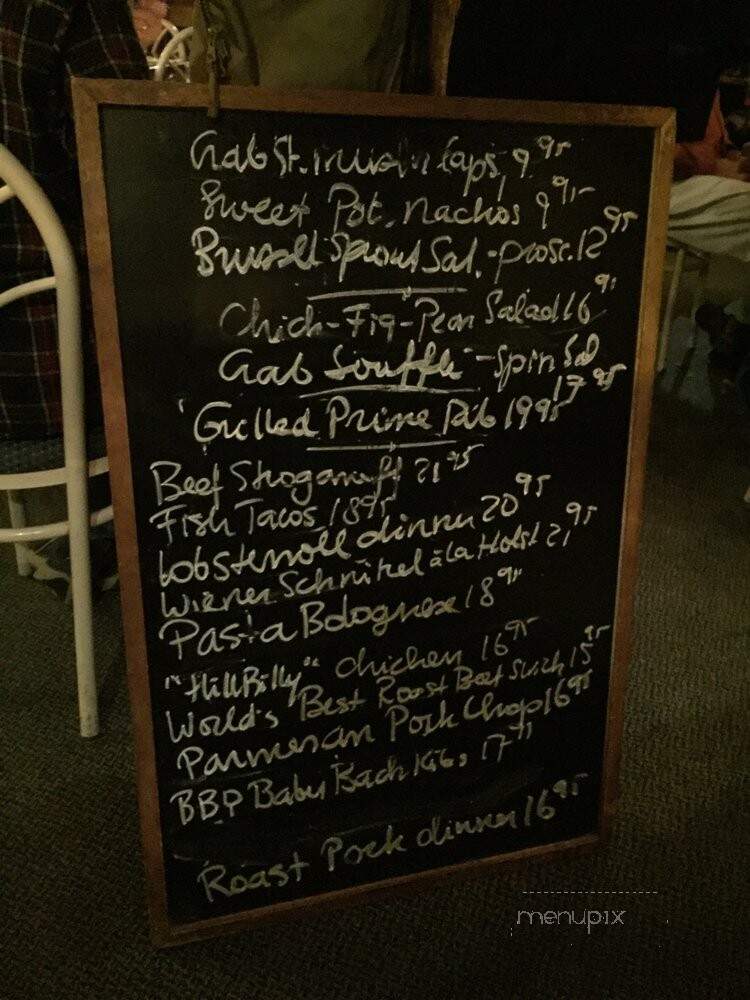 Crab St. mushr Caps, 9 95
Sweet Pot. Nachos 9 95
Brussell Sprout Sal. - prosc. 12 95
Chick-Fig-Pear Salad 16 95
Crab Souffle - Spin Sal
17 95
Grilled Prime Rib 19 95
Beef Stroganoff 21 95
Fish Tacos 18 95
Lobsterroll dinner 20 95
Wiener Schnitzel à la Holst 21 95
Pasta Bolognese 18 95
"HillBilly" Chicken 16 95
World's Best Roast Beef Swich 15 95
Parmesan Pork Chop 16 95
BBQ Baby Back Ribs 17 95
Roast Pork dinner 16 95
menupix